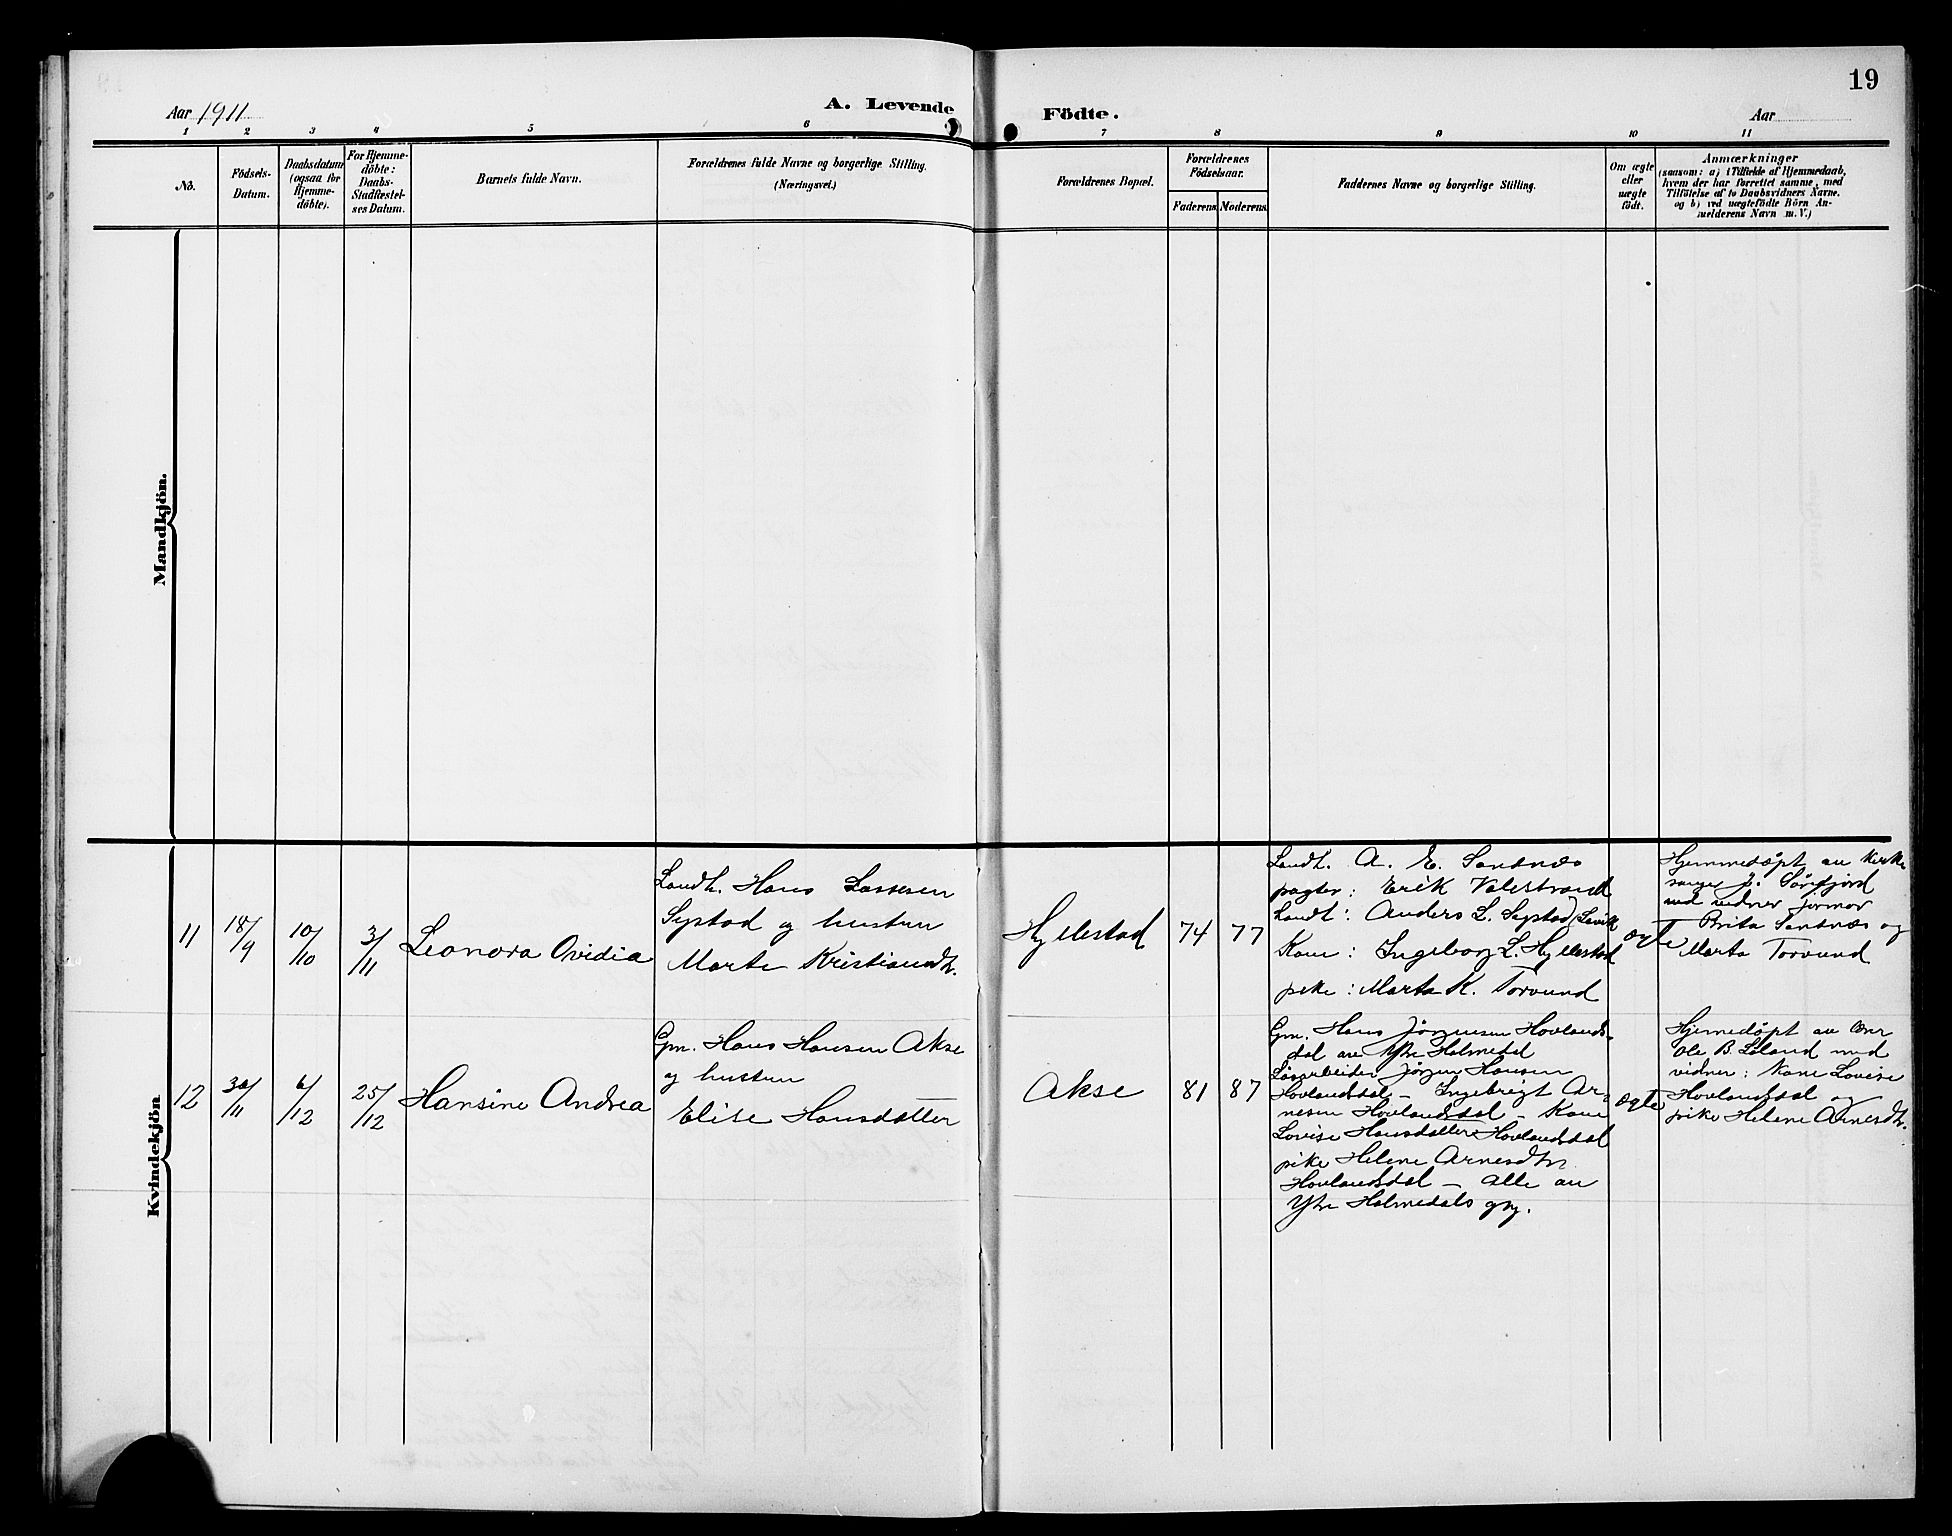 19
Aar 1911
A. Levende
Födte.
Aar
1 2 3 4 5 6 7 8 9 10 11
No.
Födsels-
Datum.
Daabsdatum
(ogsaa for
Hjemme-
döbte).
For Hjemme-
döbte:
Daabs-
Stadfæstel-
ses Datum.
Barnets fulde Navn.
Forældrenes fulde Navne og borgerlige Stilling.
(Næringsvei.)
Forældrenes Bopæl.
Forældrenes
Födselsaar.
Faderens. Moderens.
Faddernes Navne og borgerlige Stilling.
Om ægte
eller
uægte
födt.
Anmærkninger
(saasom: a) i Tilfælde af Hjemmedaab,
hvem der har forrettet samme, med
Tilföielse af to Daabsvidners Navne.
og b) ved uægtefödte Börn An-
melderens Navn m. V.)
Mandkjön.
Kvindekjön
11
18/9
10/10
3/11
Leonora Ovidia
Landh. Hans Lassesen
Systad og hustru
Marte Kristiansdtr.
Hyllestad
74
77
Landh. A. E. Sandnæs
pagter: Erik Valestrand
Landh: Anders L. Systad (Levik
Kone: Ingeborg L. Hyllestad
pike: Marta K. Torvund
ægte
Hjemmedøpt av kirke
sanger J. Sörefjord
med vidner jormor
Brita Sandnæs og
Marta Torvund
12
30/11
6/12
25/12
Hansine Andrea
Gm. Hans Hansen Akse
og hustru
Elise Hansdatter
Akse
81
87
Gm. Hans Jørgensen Hovlands-
dal av Ytre Holmedal
Løsarbeider Jørgen Hansen
Hovlandsdal – Ingebrigt Ar-
nesen Hovlandsdal – Kone
Lovise Hansdatter Hovlandsdal
pike Helene Arnesdtr
Hovlandsdal – alle av
Ytre Holmedals
ægte
Hjemedøpt av
Ole B. Leland med
vidner: Kone Lovise
Hovlandsdal og
pike Helene Arnesdtr.